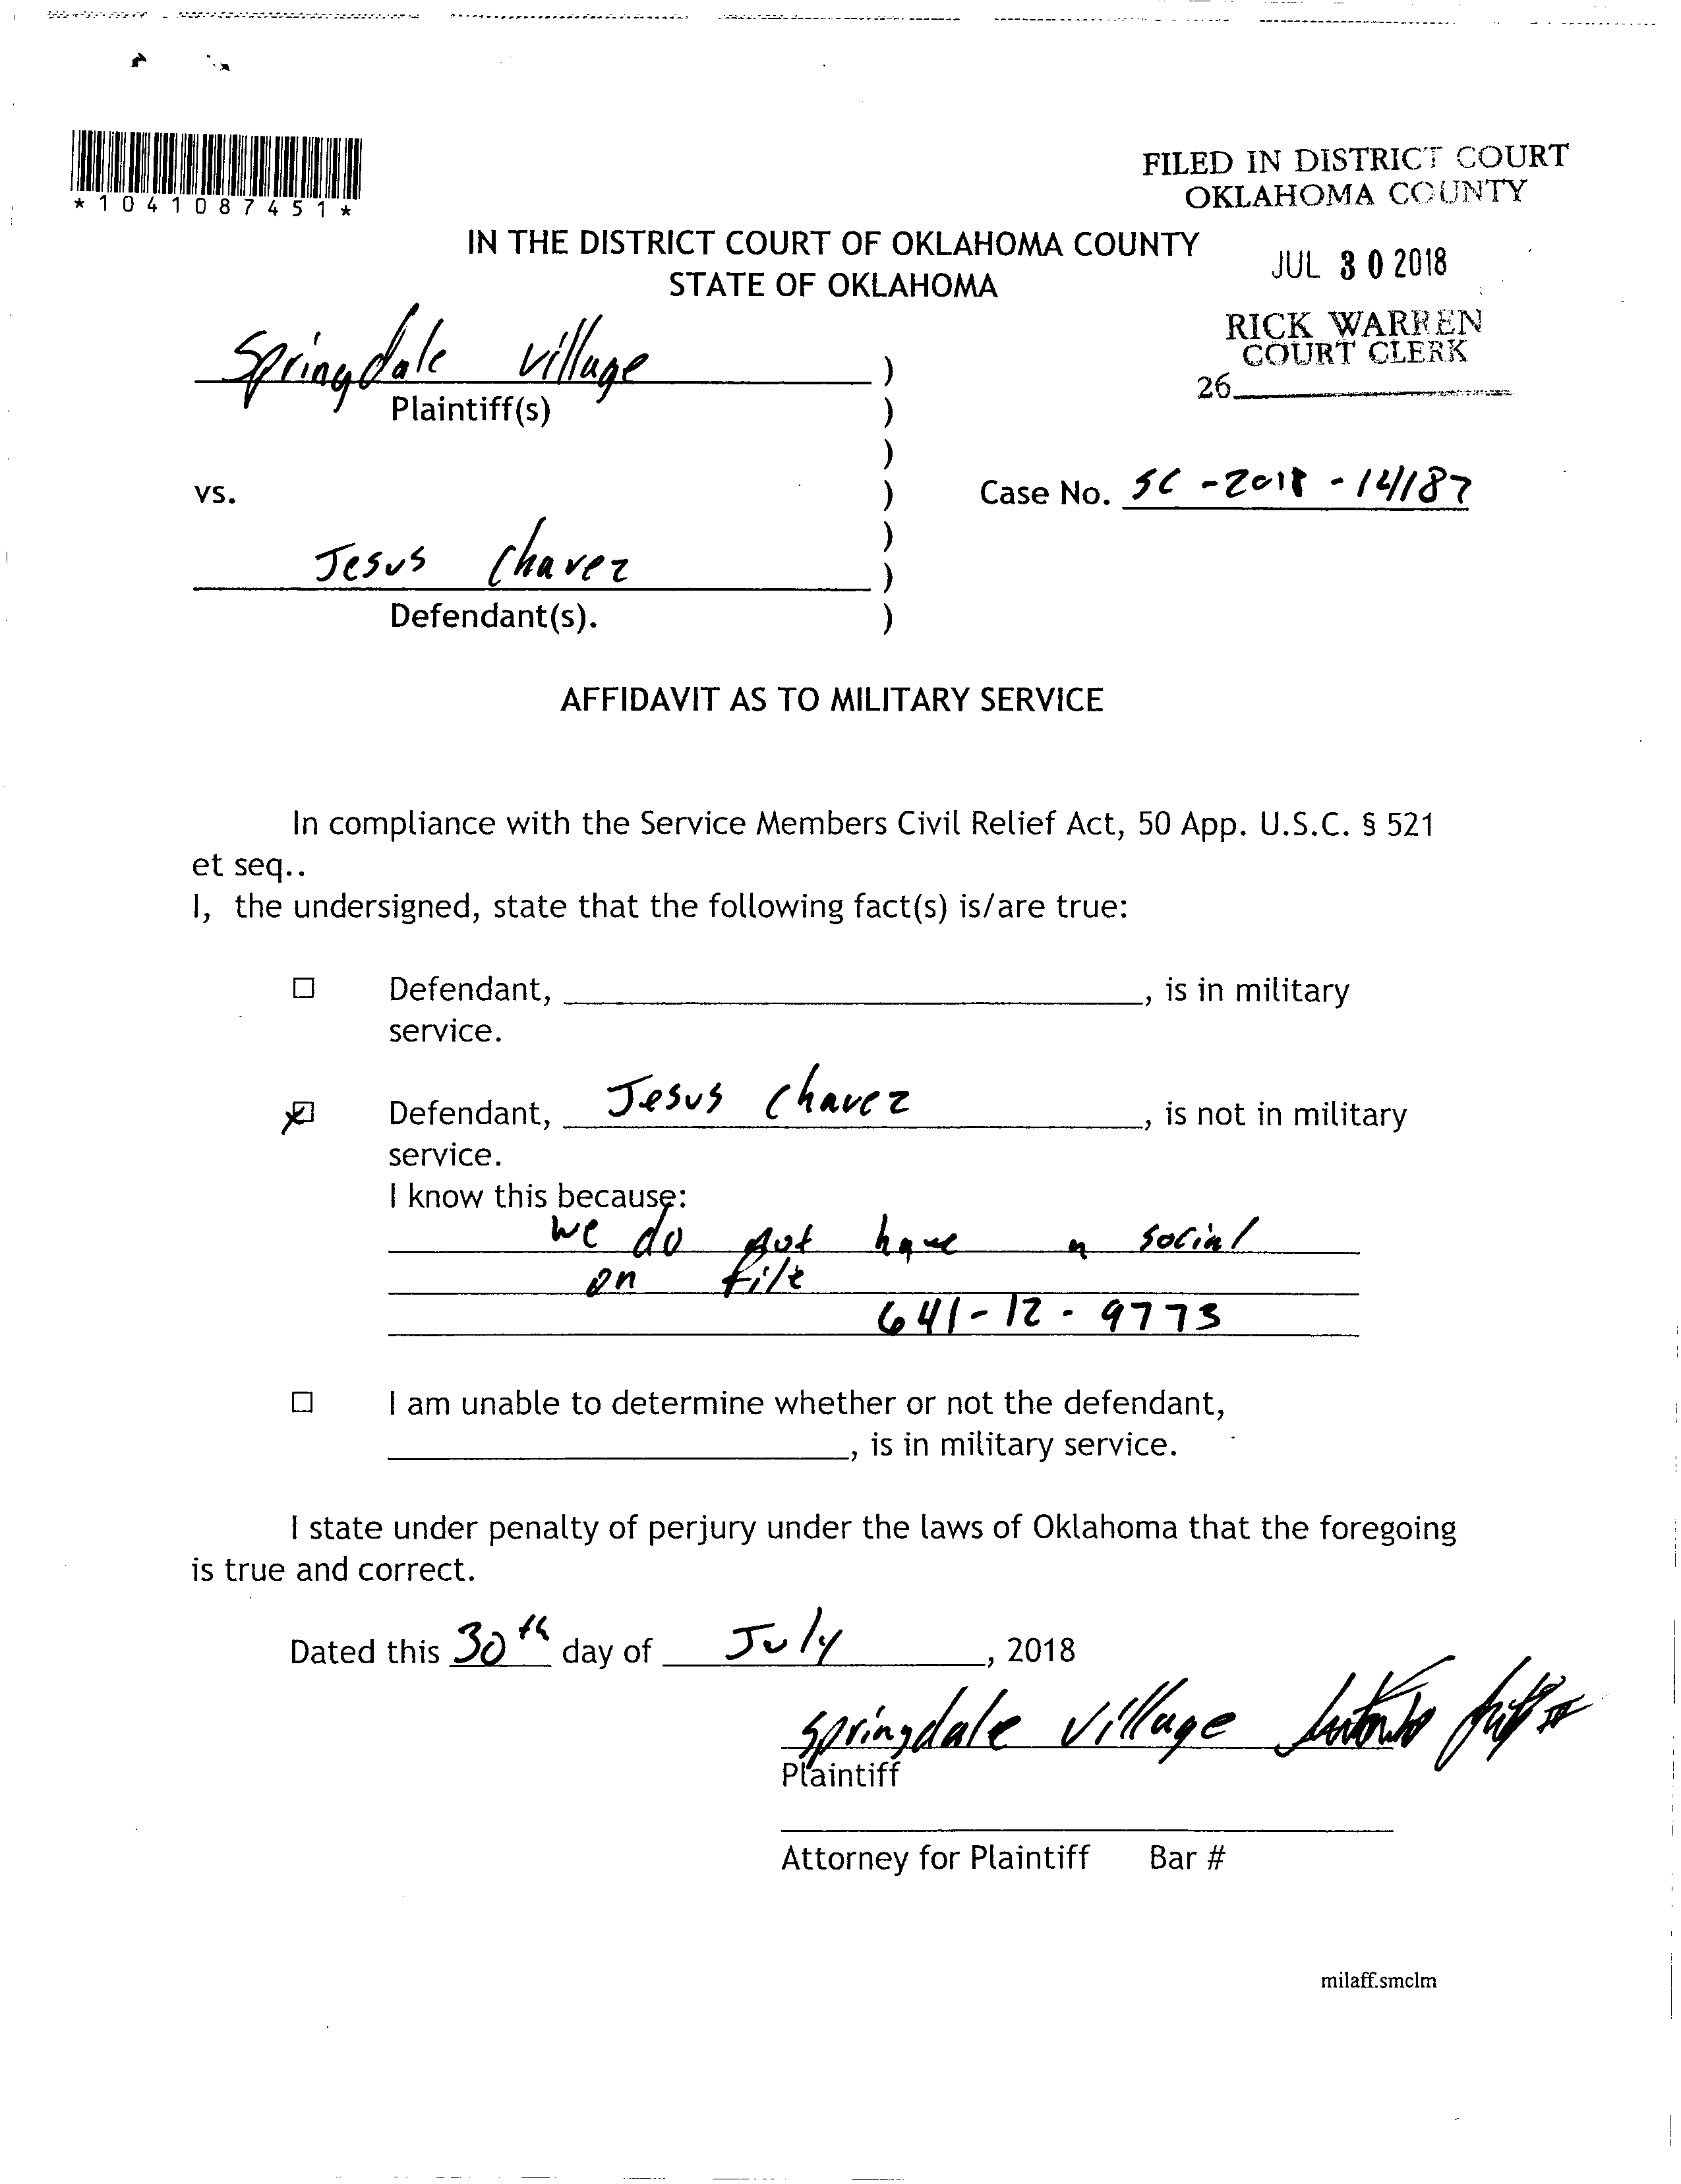 *1041087451*
FILED IN DISTRICT COURT
OKLAHOMA COUNTY
IN THE DISTRICT COURT OF OKLAHOMA COUNTY
STATE OF OKLAHOMA
JUL 30 2018
RICK WARREN
COURT CLERK
26
Springdale Village )
Plaintiff(s) )
)
vs. ) Case No. SC-2018-14187
)
Jesus Chavez )
Defendant(s). )
AFFIDAVIT AS TO MILITARY SERVICE
In compliance with the Service Members Civil Relief Act, 50 App. U.S.C. § 521
et seq..
I, the undersigned, state that the following fact(s) is/are true:
☐ Defendant, ____, is in military
service.
☒ Defendant, Jesus Chavez, is not in military
service.
I know this because:
we do not have a social
on file
641-12-9773
☐ I am unable to determine whether or not the defendant,
____, is in military service.
I state under penalty of perjury under the laws of Oklahoma that the foregoing
is true and correct.
Dated this 30th day of July, 2018
Springdale Village
Plaintiff
Attorney for Plaintiff Bar #
milaff.smclm